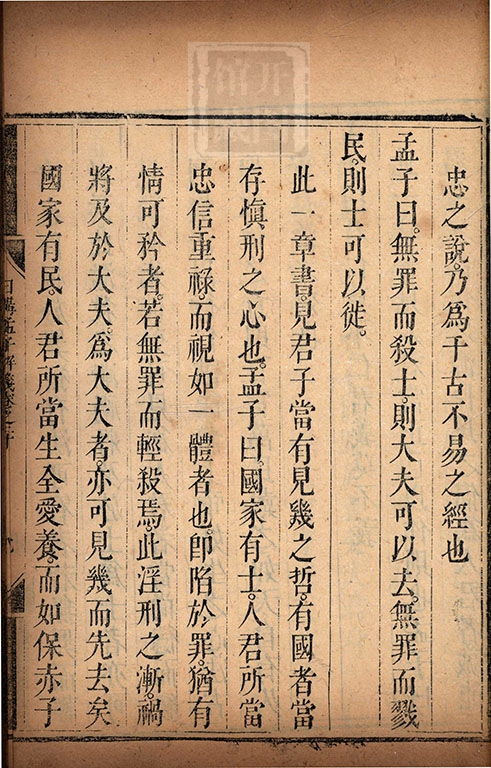 忠之說。乃爲千古不易之經也
孟子曰。無罪而殺士。則大夫可以去。無罪而戮
民。則士可以徙。
此一章書。見君子當有見幾之哲。有國者當
存慎刑之心也。孟子曰。國家有士。人君所當
忠信重祿。而視如一體者也。卽陷於罪。猶有
情可矜者。若無罪而輕殺焉。此淫刑之漸。禍
將及於大夫。爲大夫者。亦可見幾而先去矣
國家有民。人君所當生全愛養。而如保赤子